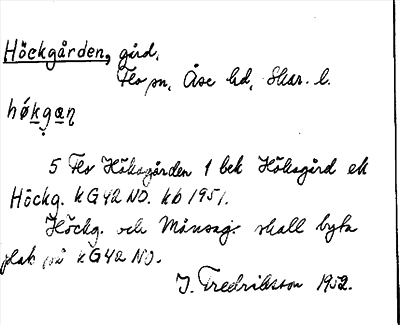 Höckgården, gård,
Flo sn, Åse hd, Skar. l.
hǿkgaṇ
5 Flo Höksgården 1 bek Höksgård ell
Höckg. KG42 NO. kb 1951.
Höckg. och Månsag. skall byta
plats på KG42 NO.
J. Fredriksson 1952.